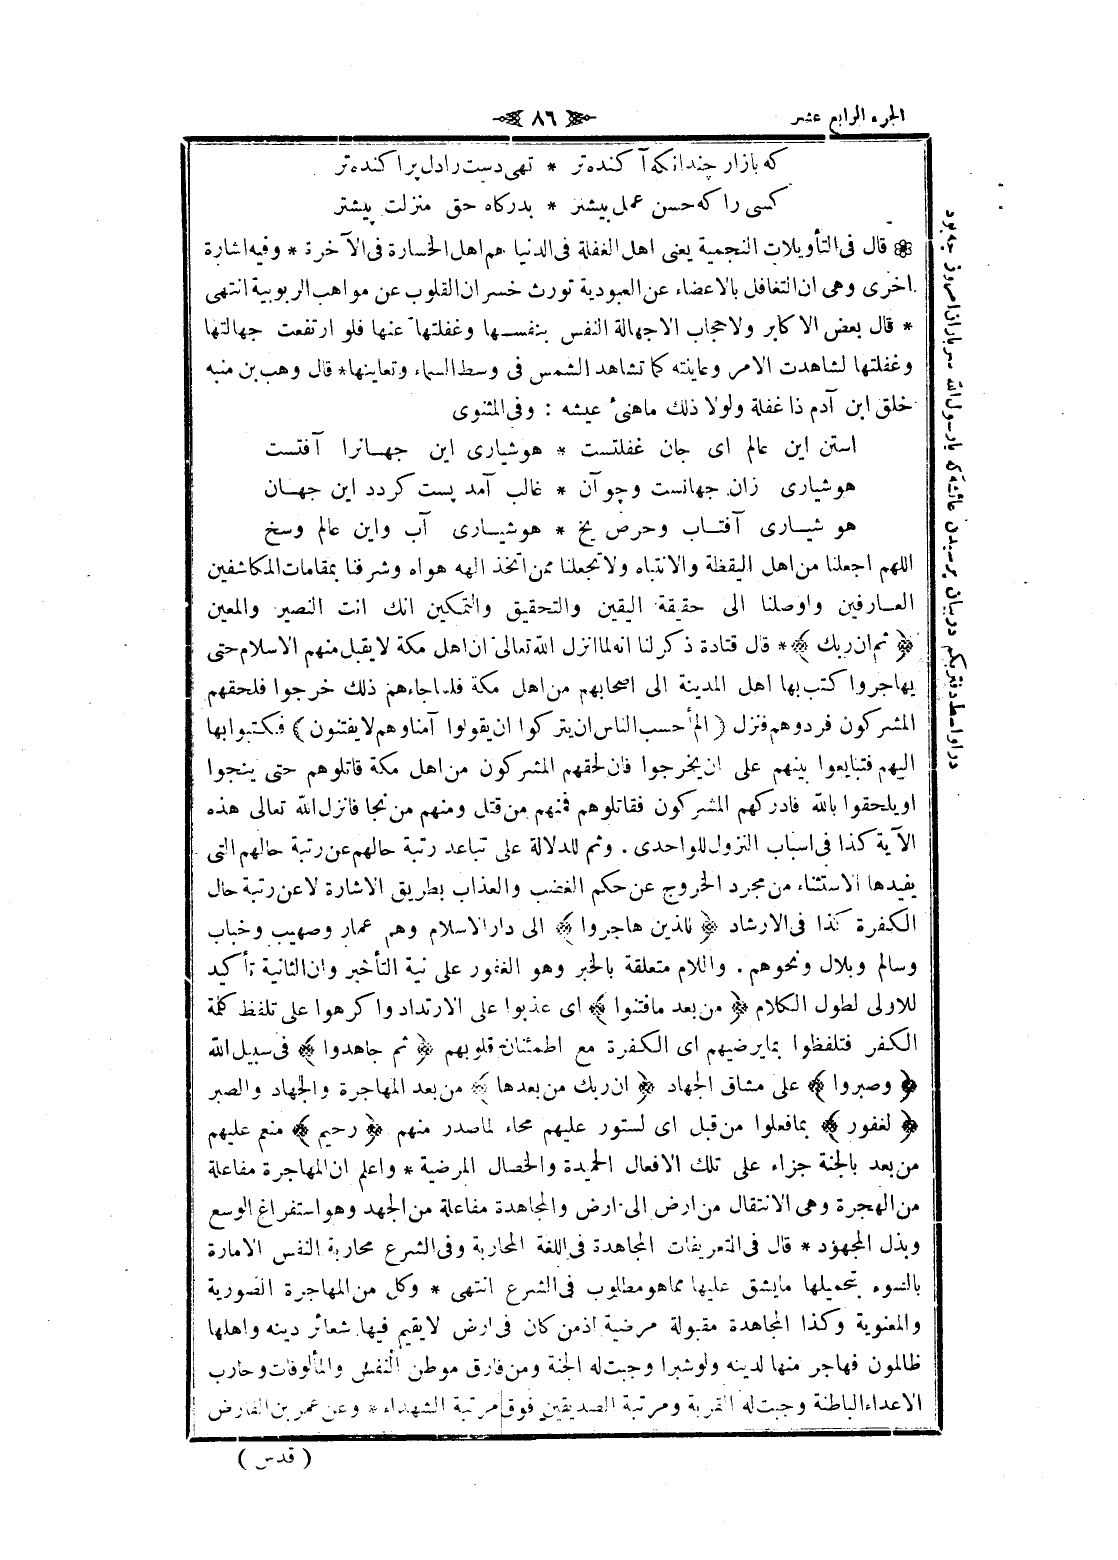 الجزء الرابع عشر
٨٦
که بازار چندانکه آکنده‌تر * تهی دست را دل پراکنده‌تر
کسی را که حسن عمل بیشتر * بدرکاه حق منزلت پیشتر
قال فى التأويلات النجمية يعنى اهل الغفلة فى الدنيا هم اهل الخسارة فى الآخرة * وفيه اشارة
اخرى وهى ان التغافل بالاعضاء عن العبودية تورث خسران القلوب عن مواهب الربوبية انتهى
* قال بعض الاكابر ولا حجاب الا جهالة النفس بنفسها وغفلتها عنها فلو ارتفعت جهالتها
وغفلتها لشاهدت الامر وعاينته كما تشاهد الشمس فى وسط السماء وتعاينها * قال وهب بن منبه
خلق ابن آدم ذا غفلة ولولا ذلك ماهنئ عيشه : وفى المثنوى
استن این عالم ای جان غفلتست * هوشیاری این جهانرا آفتست
هوشیاری زان جهانست وچو آن * غالب آمد پست کردد این جهان
هوشیاری آفتاب وحرص یخ * هوشیاری آب واین عالم وسخ
اللهم اجعلنا من اهل اليقظة والانتباه ولا تجعلنا ممن اتخذ الهه هواه وشرفنا بمقامات المكاشفين
العارفين واوصلنا الى حقيقة اليقين والتحقيق والتمكين انك انت النصير والمعين
﴿ ثم ان ربك ﴾ * قال قتادة ذكر لنا انه لما انزل الله تعالى ان اهل مكة لا يقبل منهم الاسلام حتى
يهاجروا كتب بها اهل المدينة الى اصحابهم من اهل مكة فلما جاءهم ذلك خرجوا فلحقهم
المشركون فردوهم فنزل ( الم أحسب الناس ان يتركوا ان يقولوا آمنا وهم لا يفتنون ) فكتبوا بها
اليهم فتبايعوا بينهم على ان يخرجوا فان لحقهم المشركون من اهل مكة قاتلوهم حتى ينجوا
او يلحقوا بالله فادركهم المشركون فقاتلوهم فمنهم من قتل ومنهم من نجا فانزل الله تعالى هذه
الآية كذا فى اسباب النزول للواحدى . وثم للدلالة على تباعد رتبة حالهم عن رتبة حالهم التى
يفيدها الاستثناء من مجرد الخروج عن حكم الغضب والعذاب بطريق الاشارة لا عن رتبة حال
الكفرة كذا فى الارشاد ﴿ للذين هاجروا ﴾ الى دار الاسلام وهم عمار وصهيب وخباب
وسالم وبلال ونحوهم . واللام متعلقة بالخبر وهو الغفور على نية التأخير وان الثانية تأكيد
للاولى لطول الكلام ﴿ من بعد ما فتنوا ﴾ اى عذبوا على الارتداد واكرهوا على تلفظ كلمة
الكفر فتلفظوا بما يرضيهم اى الكفرة مع اطمئنان قلوبهم ﴿ ثم جاهدوا ﴾ فى سبيل الله
﴿ وصبروا ﴾ على مشاق الجهاد ﴿ ان ربك من بعدها ﴾ من بعد المهاجرة والجهاد والصبر
﴿ لغفور ﴾ بما فعلوا من قبل اى لستور عليهم محاء لما صدر منهم ﴿ رحيم ﴾ منعم عليهم
من بعد بالجنة جزاء على تلك الافعال الحميدة والخصال المرضية * واعلم ان المهاجرة مفاعلة
من الهجرة وهى الانتقال من ارض الى ارض والمجاهدة مفاعلة من الجهد وهو استفراغ الوسع
وبذل المجهود * قال فى التعريفات المجاهدة فى اللغة المحاربة وفى الشرع محاربة النفس الامارة
بالسوء بتحميلها ما يشق عليها مما هو مطلوب فى الشرع انتهى * وكل من المهاجرة الصورية
والمعنوية وكذا المجاهدة مقبولة مرضية اذ من كان فى ارض لا يقيم فيها شعائر دينه واهلها
ظالمون فهاجر منها لدينه ولو شبرا وجبت له الجنة ومن فارق موطن النفس والمألوفات وحارب
الاعداء الباطنة وجبت له القربة ومرتبة الصديقين فوق مرتبة الشهداء * وعن عمر بن الفارض
( قدس )
در اواسط دفتر یکم در بیان پرسیدن عائشه که یا رسول الله سر باران امروز چه بود